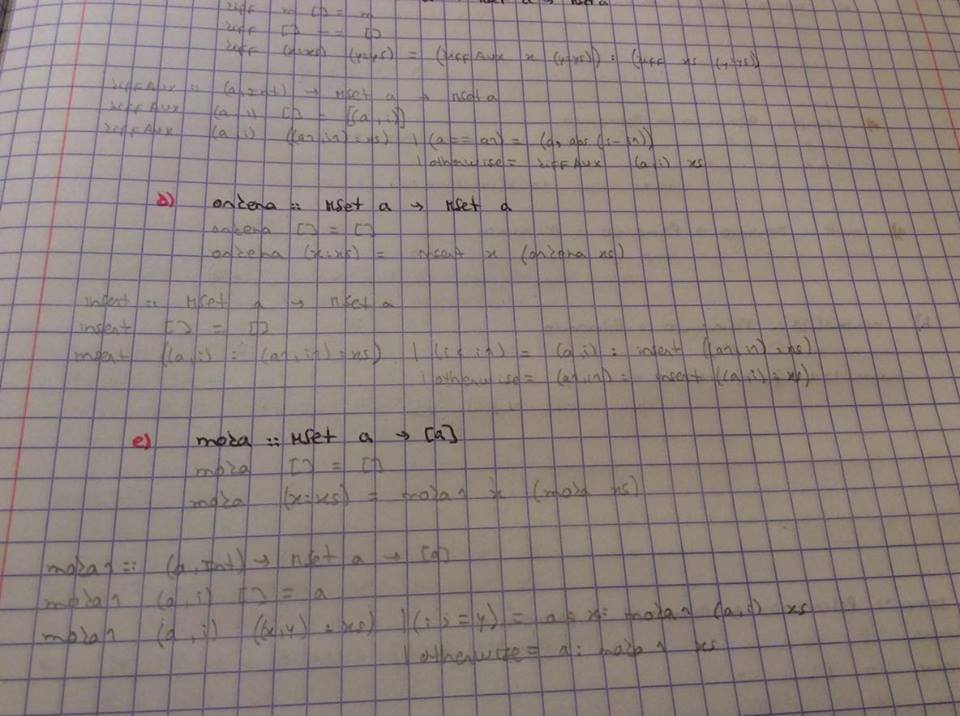 [] = 
[] _ = []
(x:xs) (y:ys) = (diffAux x (y:ys)) : (diff xs (y:ys))
diffAux :: (a, Int) → MSet a → MSet a
diffAux (a, i) [] = [(a, i)]
diffAux (a, i) ((a1, i1) : xs) | (a == a1) = (a, abs (i - i1))
| otherwise = diffAux (a, i) xs
d) ordena :: MSet a → MSet a
ordena [] = []
ordena (x:xs) = insert x (ordena xs)
insert :: MSet a → MSet a
insert [] = []
insert ((a, i) : (a1, i1) : xs) | (i < i1) = (a, i) : insert ((a1, i1) : xs)
| otherwise = (a1, i1) : insert ((a, i) : xs)
e) moda :: MSet a → [a]
moda [] = []
moda (x:xs) = moda1 x (moda xs)
moda1 :: (a, Int) → MSet a → [a]
moda1 (a, i) [] = a
moda1 (a, i) ((x, y) : xs) | (i == y) = a : x : moda1 (a, i) xs
| otherwise = a : moda1 xs